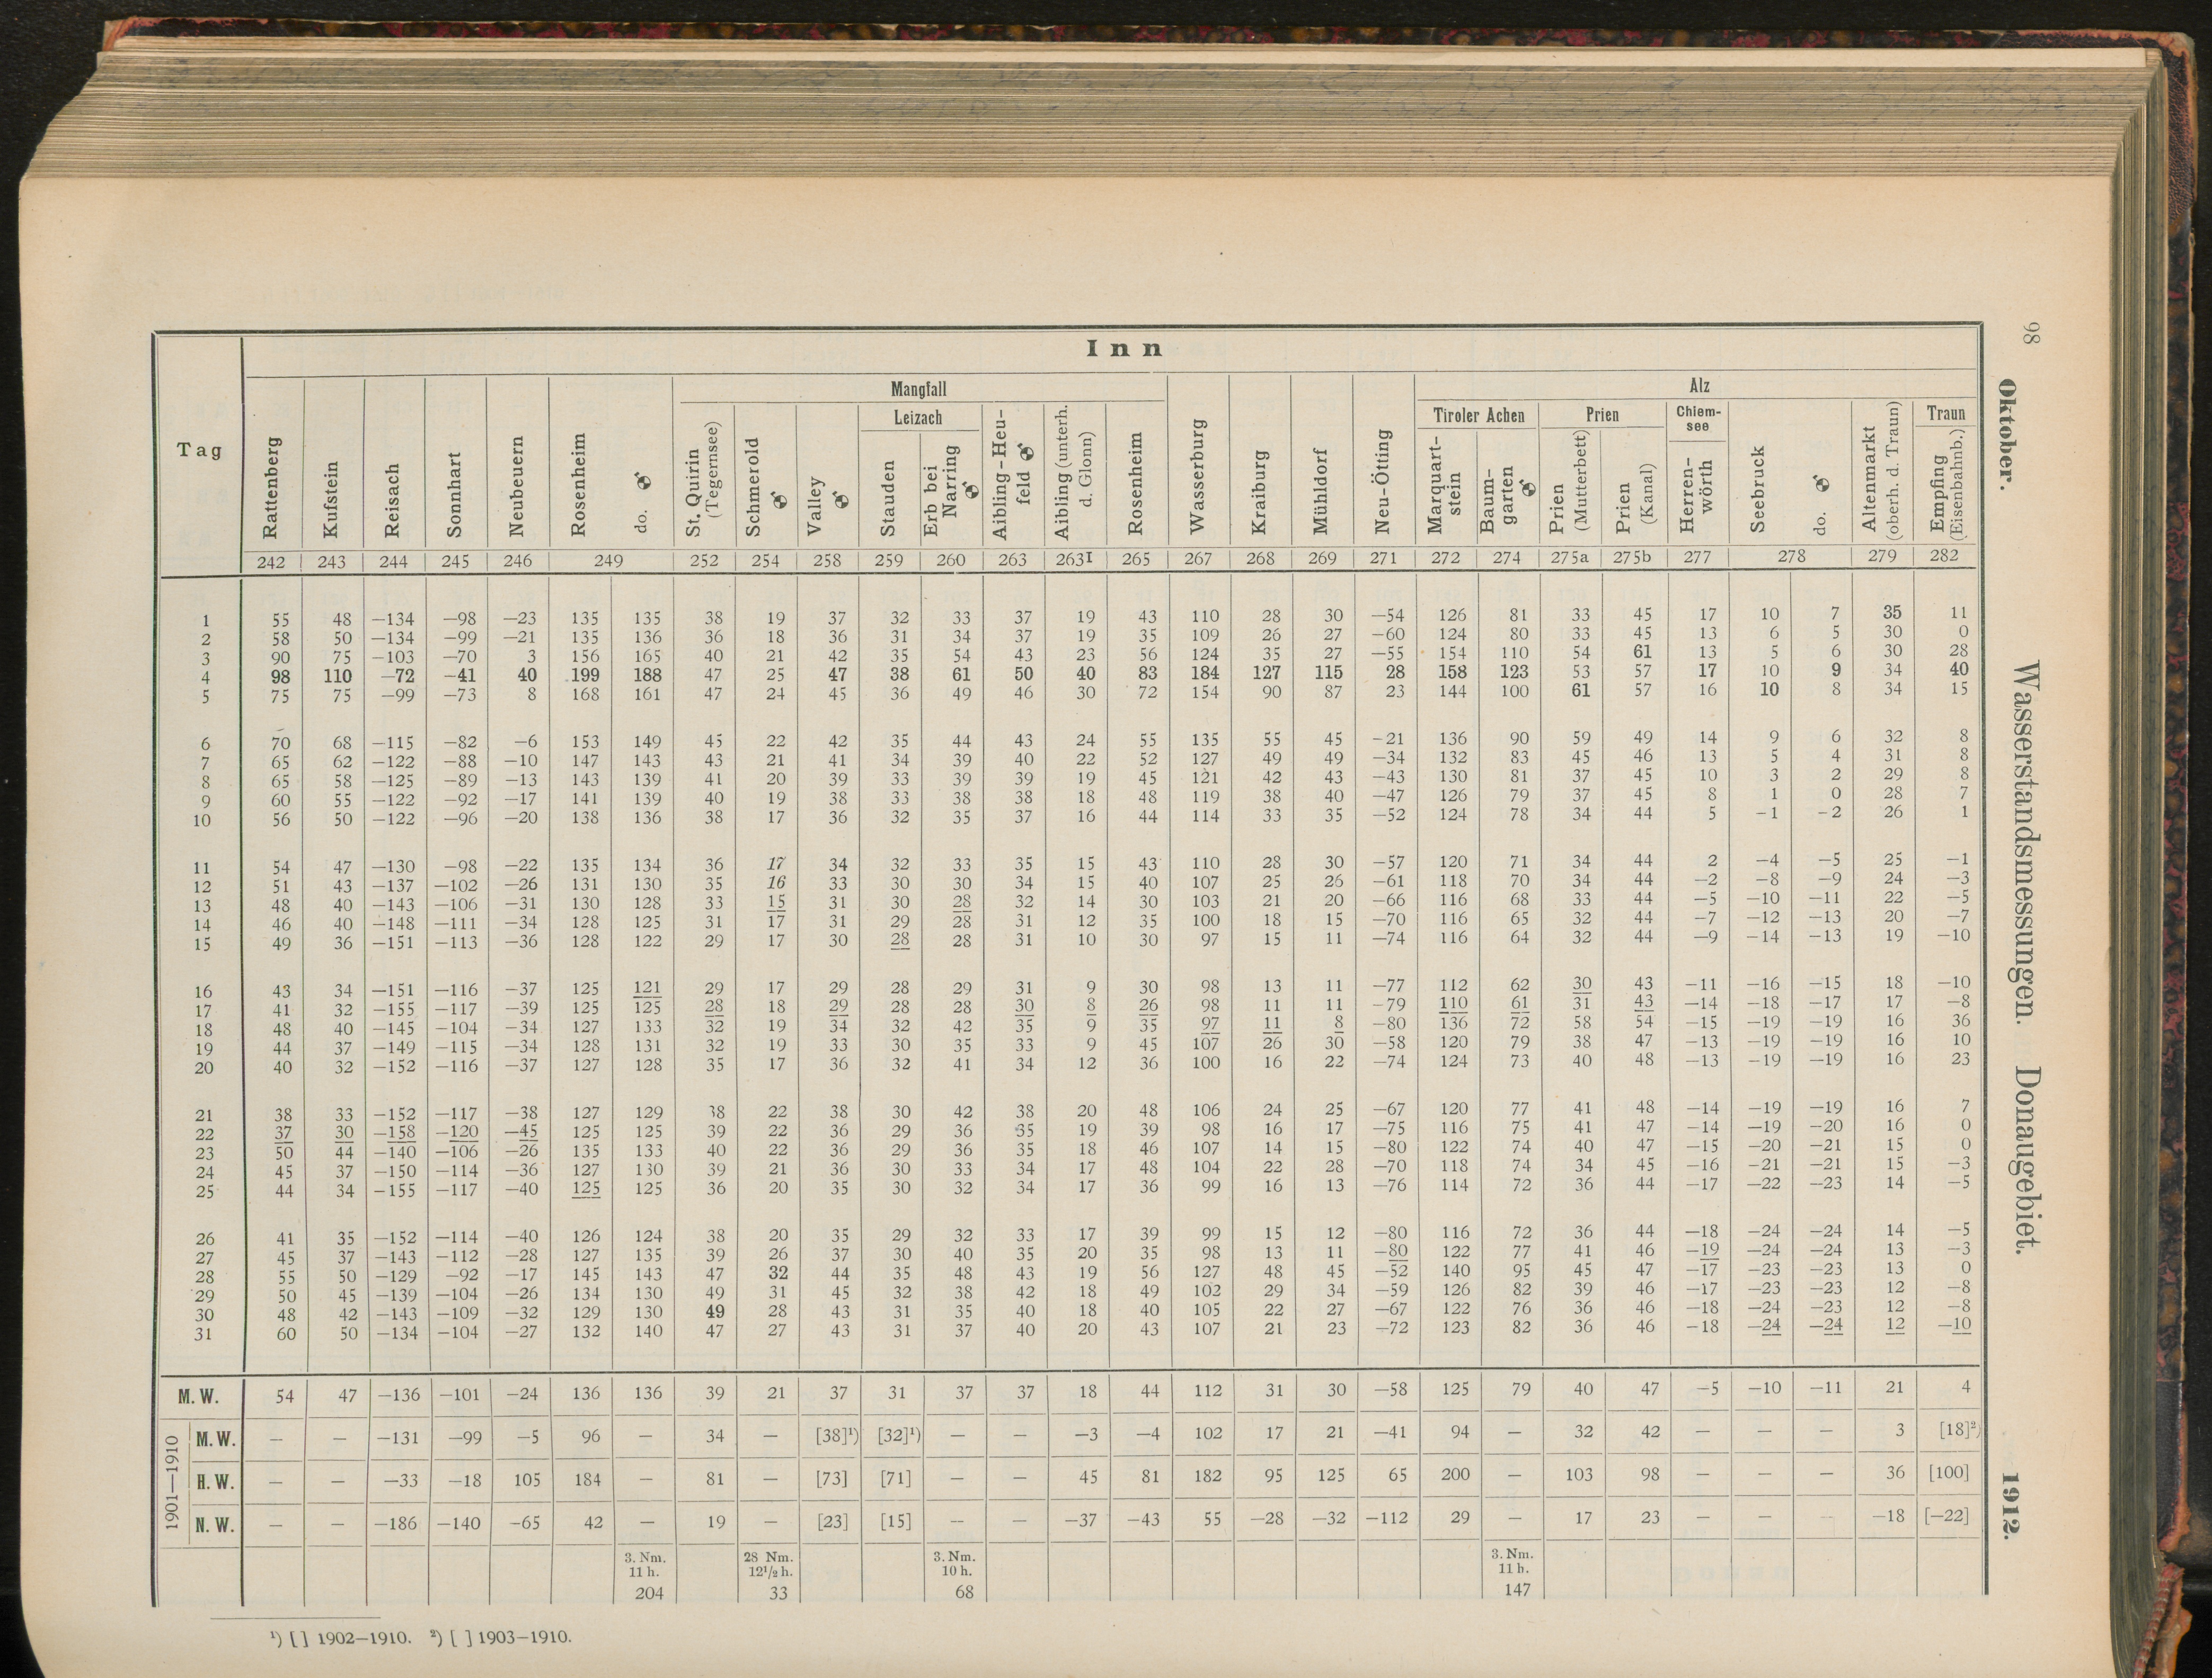 98
Oktober. Wasserstandsmessungen. Donaugebiet. 1912.
Inn
Mangfall Alz
Leizach Tiroler Achen Prien Chiem-see Traun
Tag Rattenberg Kufstein Reisach Sonnhart Neubeuern Rosenheim do. St. Quirin (Tegernsee) Schmerold Valley Stauden Erb bei Narring Aibling-Heufeld Aibling (unterh. d. Glonn) Rosenheim Wasserburg Kraiburg Mühldorf Neu-Ötting Marquart-stein Baum-garten Prien (Mutterbett) Prien (Kanal) Herren-wörth Seebruck do. Altenmarkt (oberh. d. Traun) Empfing (Eisenbahnb.)
242 243 244 245 246 249 252 254 258 259 260 263 263I 265 267 268 269 271 272 274 275a 275b 277 278 279 282
1 55 48 —134 —98 —23 135 135 38 19 37 32 33 37 19 43 110 28 30 —54 126 81 33 45 17 10 7 35 11
2 58 50 —134 —99 —21 135 136 36 18 36 31 34 37 19 35 109 26 27 —60 124 80 33 45 13 6 5 30 0
3 90 75 —103 —70 3 156 165 40 21 42 35 54 43 23 56 124 35 27 —55 154 110 54 61 13 5 6 30 28
4 98 110 —72 —41 40 199 188 47 25 47 38 61 50 40 83 184 127 115 28 158 123 53 57 17 10 9 34 40
5 75 75 —99 —73 8 168 161 47 24 45 36 49 46 30 72 154 90 87 23 144 100 61 57 16 10 8 34 15
6 70 68 —115 —82 —6 153 149 45 22 42 35 44 43 24 55 135 55 45 -21 136 90 59 49 14 9 6 32 8
7 65 62 —122 —88 —10 147 143 43 21 41 34 39 40 22 52 127 49 49 —34 132 83 45 46 13 5 4 31 8
8 65 58 —125 —89 —13 143 139 41 20 39 33 39 39 19 45 121 42 43 —43 130 81 37 45 10 3 2 29 8
9 60 55 —122 —92 —17 141 139 40 19 38 33 38 38 18 48 119 38 40 —47 126 79 37 45 8 1 0 28 7
10 56 50 —122 —96 —20 138 136 38 17 36 32 35 37 16 44 114 33 35 —52 124 78 34 44 5 -1 -2 26 1
11 54 47 —130 —98 —22 135 134 36 17 34 32 33 35 15 43 110 28 30 —57 120 71 34 44 2 —4 —5 25 —1
12 51 43 —137 —102 —26 131 130 35 16 33 30 30 34 15 40 107 25 26 —61 118 70 34 44 —2 —8 —9 24 —3
13 48 40 —143 —106 —31 130 128 33 15 31 30 28 32 14 30 103 21 20 —66 116 68 33 44 —5 —10 —11 22 —5
14 46 40 —148 —111 —34 128 125 31 17 31 29 28 31 12 35 100 18 15 —70 116 65 32 44 —7 —12 —13 20 —7
15 49 36 —151 —113 —36 128 122 29 17 30 28 28 31 10 30 97 15 11 —74 116 64 32 44 —9 —14 —13 19 —10
16 43 34 —151 —116 —37 125 121 29 17 29 28 29 31 9 30 98 13 11 —77 112 62 30 43 —11 —16 —15 18 —10
17 41 32 —155 —117 —39 125 125 28 18 29 28 28 30 8 26 98 11 11 —79 110 61 31 43 —14 —18 —17 17 —8
18 48 40 —145 —104 —34 127 133 32 19 34 32 42 35 9 35 97 11 8 —80 136 72 58 54 —15 —19 —19 16 36
19 44 37 —149 —115 —34 128 131 32 19 33 30 35 33 9 45 107 26 30 —58 120 79 38 47 —13 —19 —19 16 10
20 40 32 —152 —116 —37 127 128 35 17 36 32 41 34 12 36 100 16 22 —74 124 73 40 48 —13 —19 —19 16 23
21 38 33 —152 —117 —38 127 129 38 22 38 30 42 38 20 48 106 24 25 —67 120 77 41 48 —14 —19 —19 16 7
22 37 30 —158 —120 —45 125 125 39 22 36 29 36 35 19 39 98 16 17 —75 116 75 41 47 —14 —19 —20 16 0
23 50 44 —140 —106 —26 135 133 40 22 36 29 36 35 18 46 107 14 15 —80 122 74 40 47 —15 —20 —21 15 0
24 45 37 —150 —114 —36 127 130 39 21 36 30 33 34 17 48 104 22 28 —70 118 74 34 45 —16 —21 —21 15 —3
25 44 34 —155 —117 —40 125 125 36 20 35 30 32 34 17 36 99 16 13 —76 114 72 36 44 —17 —22 —23 14 —5
26 41 35 —152 —114 —40 126 124 38 20 35 29 32 33 17 39 99 15 12 —80 116 72 36 44 —18 —24 —24 14 —5
27 45 37 —143 —112 —28 127 135 39 26 37 30 40 35 20 35 98 13 11 —80 122 77 41 46 —19 —24 —24 13 —3
28 55 50 —129 —92 —17 145 143 47 32 44 35 48 43 19 56 127 48 45 —52 140 95 45 47 —17 —23 —23 13 0
29 50 45 —139 —104 —26 134 130 49 31 45 32 38 42 18 49 102 29 34 —59 126 82 39 46 —17 —23 —23 12 —8
30 48 42 —143 —109 —32 129 130 49 28 43 31 35 40 18 40 105 22 27 —67 122 76 36 46 —18 —24 —23 12 —8
31 60 50 —134 —104 —27 132 140 47 27 43 31 37 40 20 43 107 21 23 —72 123 82 36 46 —18 —24 —24 12 —10
M.W. 54 47 —136 —101 —24 136 136 39 21 37 31 37 37 18 44 112 31 30 —58 125 79 40 47 —5 —10 —11 21 4
1901—1910
M.W. — — —131 —99 —5 96 — 34 — [38]¹) [32]¹) — — —3 —4 102 17 21 —41 94 — 32 42 — — — 3 [18]²)
H.W. — — —33 —18 105 184 — 81 — [73] [71] — — 45 81 182 95 125 65 200 — 103 98 — — — 36 [100]
N.W. — — —186 —140 —65 42 — 19 — [23] [15] — — —37 —43 55 —28 —32 —112 29 — 17 23 — — — —18 [—22]
3. Nm. 28 Nm. 3. Nm. 3. Nm.
11 h. 12¹/₂ h. 10 h. 11 h.
204 33 68 147
¹) [ ] 1902—1910. ²) [ ] 1903—1910.